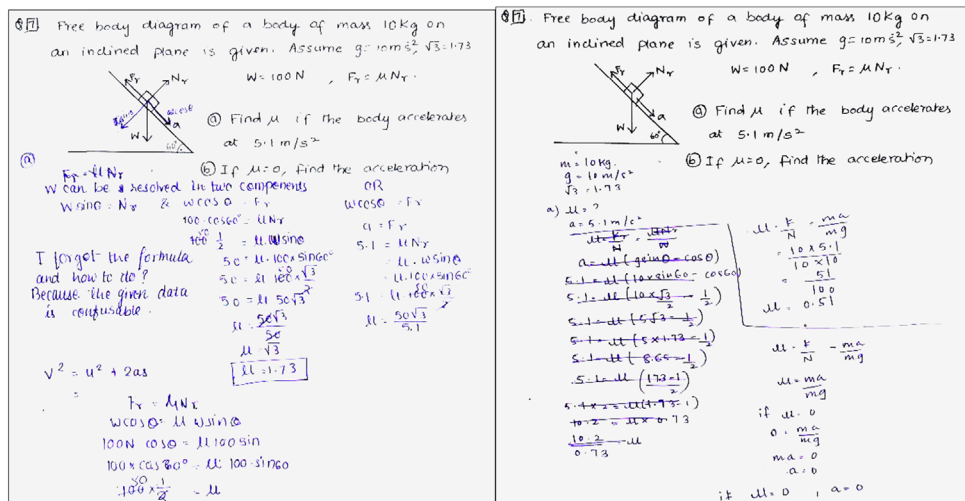 Q7 Free body diagram of a body of mass 10Kg on
an inclined plane is given. Assume g=10ms², √3=1.73
W=100N , Fr = μNr.
Fr
Nr
wcosθ
a
W
60°
ⓐ Find μ if the body accelerates
at 5.1m/s²
ⓑ If μ=0, find the acceleration
ⓐ
Fr = μNr
W can be resolved in two components
OR
Wsinθ = Nr & wcosθ = Fr
100·cos60° = μNr
100 1/2 = μ.Wsinθ
50 = μ.100×sin60°
50 = μ 100×√3/2
50 = μ 50√3
μ = 50√3/50
μ = √3
μ = 1.73
wcosθ = Fr
a = Fr
5.1 = μNr
= μ.wsinθ
= μ.100×sin60°
5.1 = μ.100×√3/2
μ = 50√3/5.1
I forgot the formula
and how to do?
Because the given data
is confusable.
V² = u² + 2as
=
Fr = μNr
wcosθ = μ wsinθ
100N cosθ = μ100sin
100×cos60° = μ.100.sin60
100×1/2 = μ
Q7 Free body diagram of a body of mass 10Kg on
an inclined plane is given. Assume g=10ms², √3=1.73
W=100N , Fr = μNr.
Fr
Nr
a
W
60°
ⓐ Find μ if the body accelerates
at 5.1m/s²
ⓑ If μ=0, find the acceleration
m = 10kg.
g = 10m/s²
√3 = 1.73
a) μ = ?
a = 5.1m/s²
a = μ(gsinθ - cosθ)
5.1 = μ(10×sin60 - cos60)
5.1 = μ(10×√3/2 - 1/2)
5.1 = μ(5√3 - 1/2)
5.1 = μ(5×1.73 - 1/2)
5.1 = μ(8.65 - 1/2)
5.1 = μ(173-1/2)
5.1×2 = μ(1.73-1)
10.2 = μ×0.73
10.2/0.73 = μ
μ = F/N = ma/mg
= 10×5.1/10×10
= 51/100
μ = 0.51
μ = F/N = ma/mg
μ = ma/mg
if μ = 0
0 = ma/mg
ma = 0
a = 0
if μ=0 , a=0